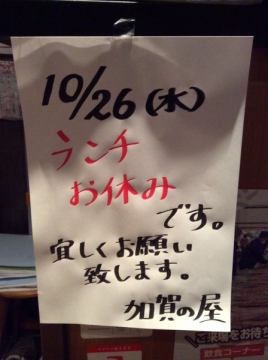 10/26(水)
ランチ
お休み
です。
宜しくお願い
致します。
加賀の屋
ご来場をお待ち
飲食コーナー